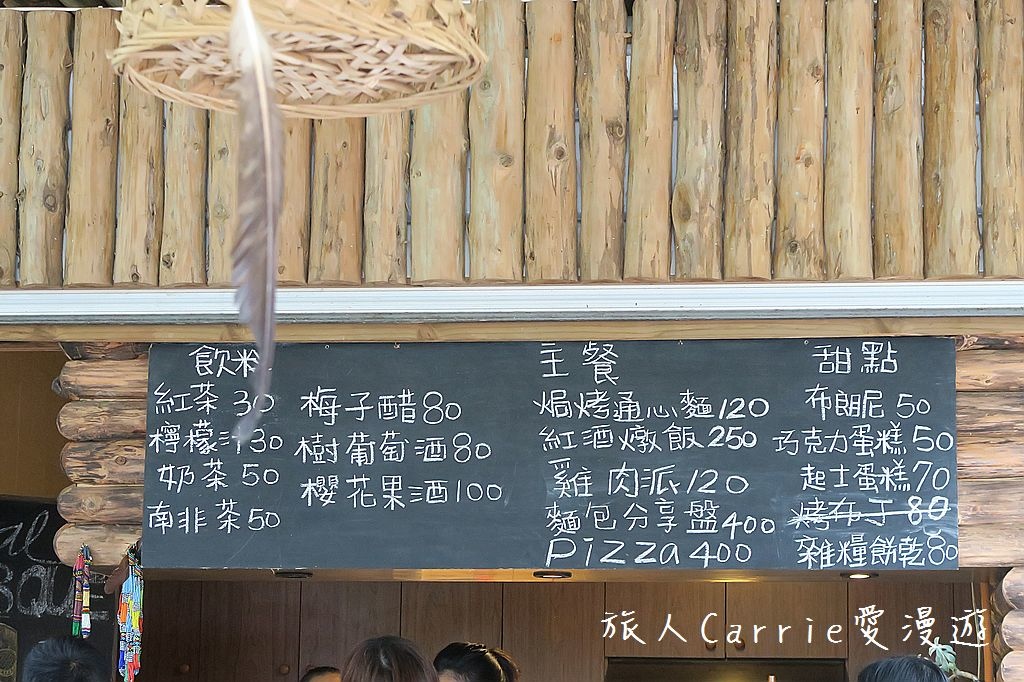 飲料
紅茶 30
檸檬汁 30
奶茶 50
南非茶 50
梅子醋 80
樹葡萄酒 80
櫻花果酒 100
主餐
焗烤通心麵 120
紅酒燉飯 250
雞肉派 120
麵包分享盤 400
Pizza 400
甜點
布朗尼 50
巧克力蛋糕 50
起士蛋糕 70
烤布丁 80
雜糧餅乾 80
旅人Carrie愛漫遊